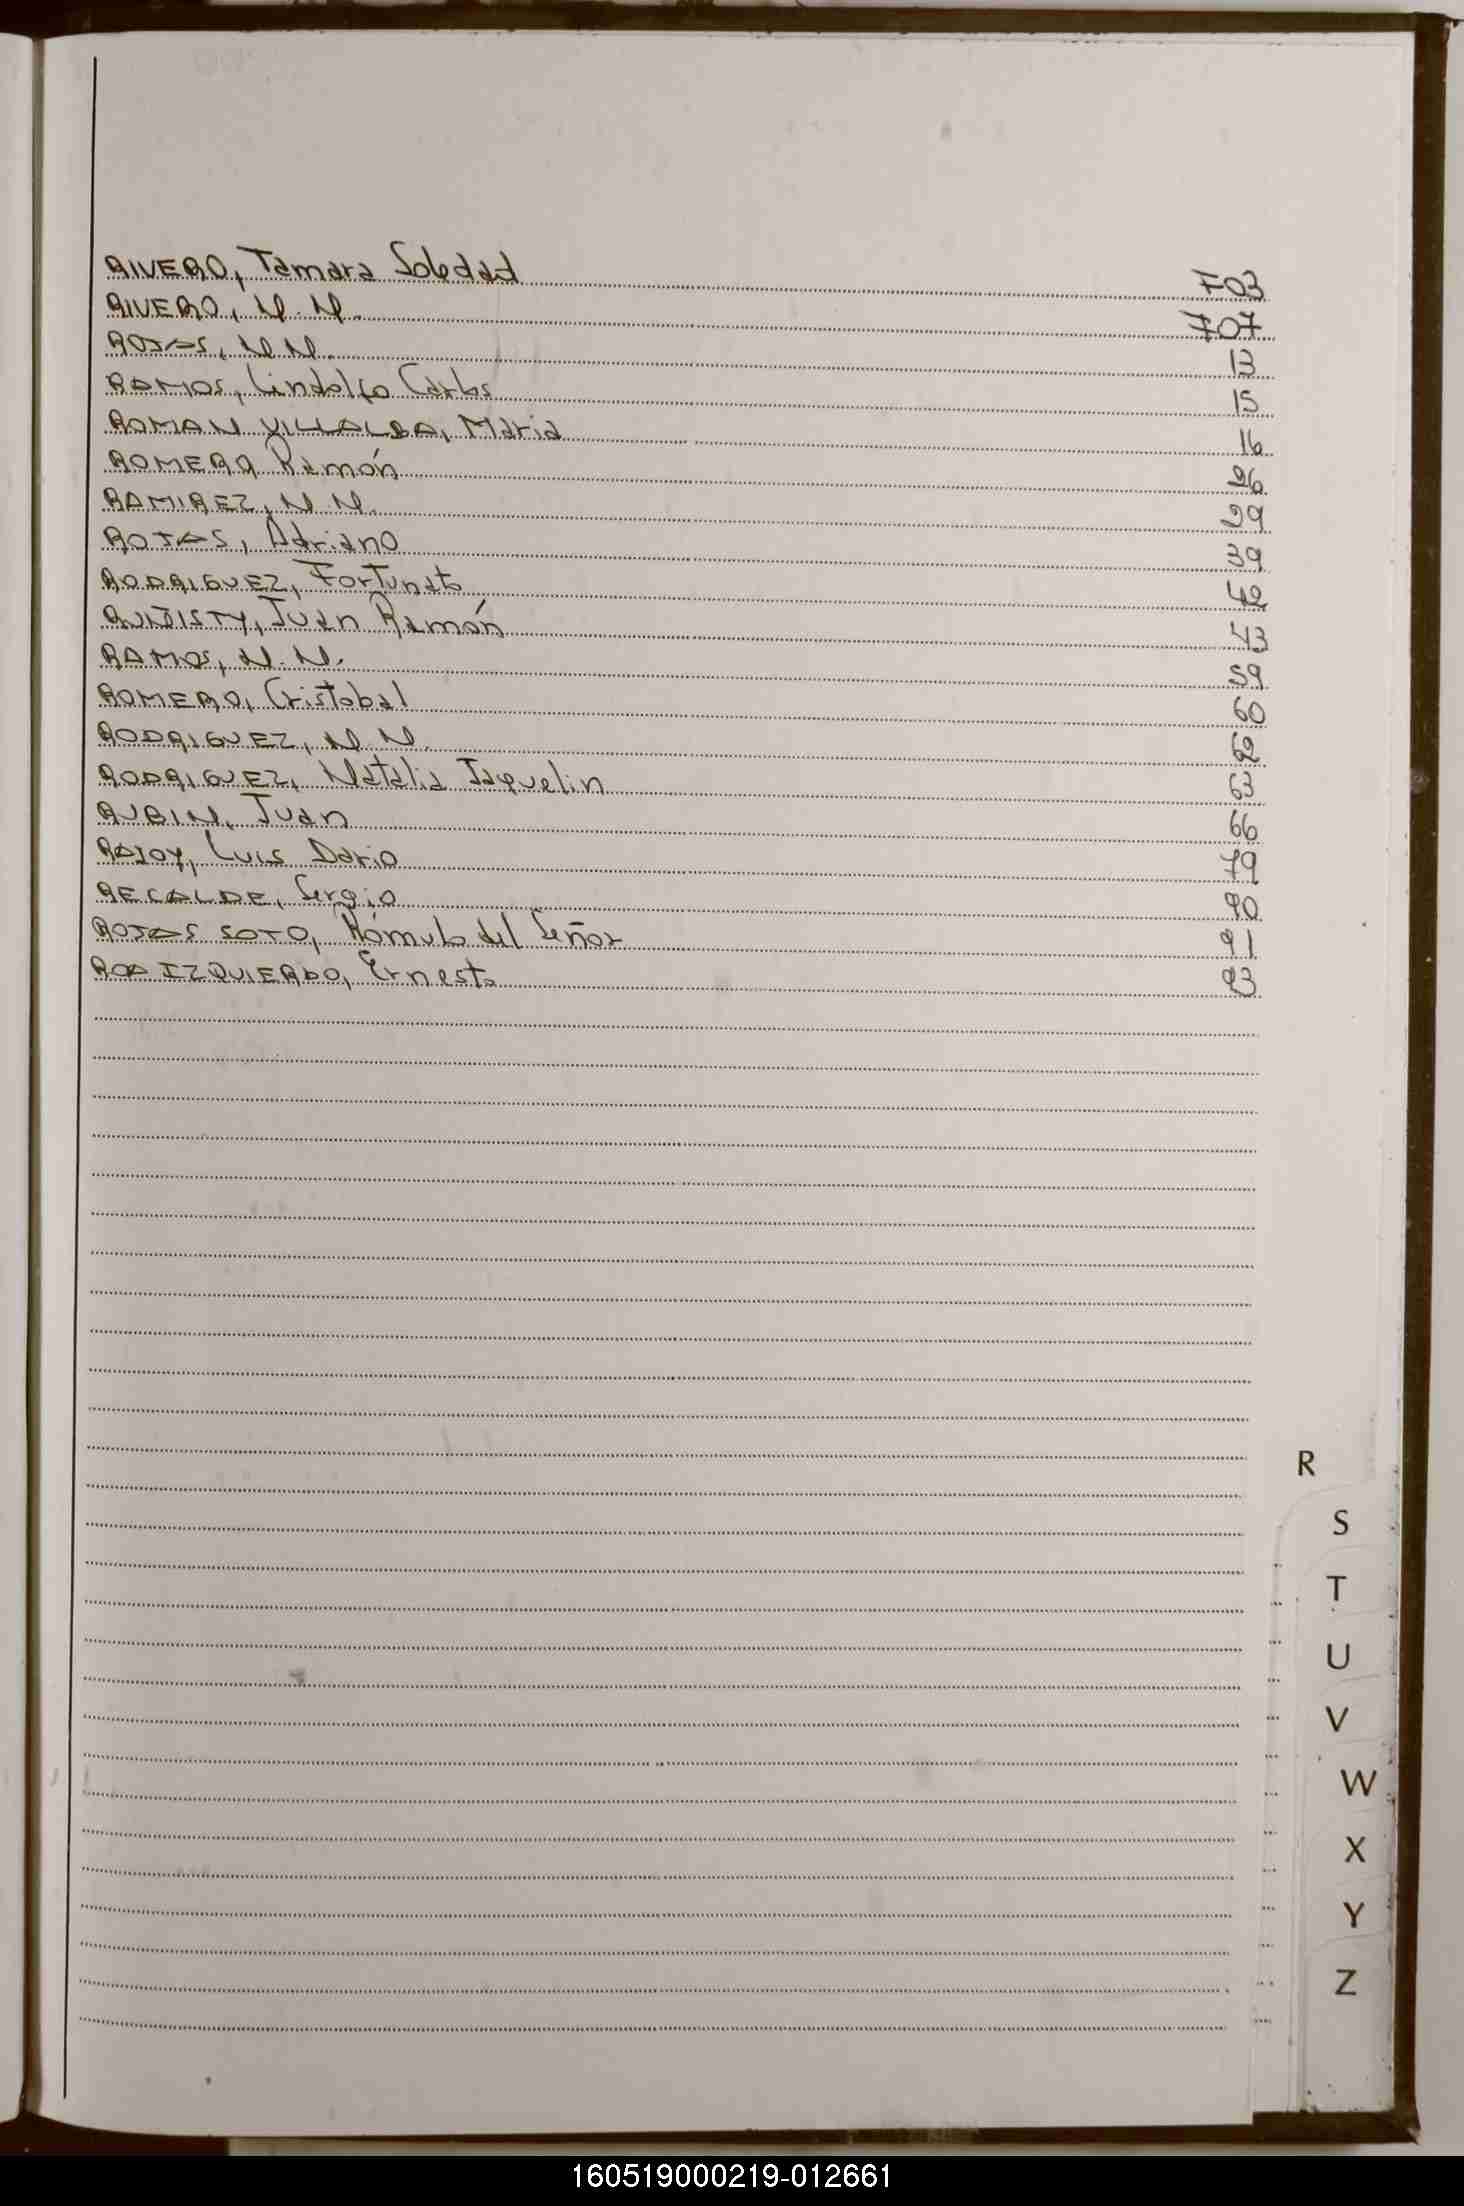 RIVERO, Tamara Soledad F03
RIVERO, N.N. F07
ROJAS, N.N. 13
RAMOS, Lindolfo Carlos 15
ROMAN VILLALBA, Maria 16
ROMERO, Ramón 26
RAMIREZ, N.N. 29
ROJAS, Adriano 39
RODRIGUEZ, Fortunato 42
Juan Ramón 43
RAMOS, N.N. 59
ROMERO, Cristobal 60
RODRIGUEZ, N.N. 62
RODRIGUEZ, Natalia Jaquelin 63
RUBIN, Juan 66
RAJOY, Luis Dario 79
RECALDE, Sergio 90
ROJAS SOTO, Rómulo del Señor 91
ROA IZQUIERDO, Ernesto 93
R
S
T
U
V
W
X
Y
Z
160519000219-012661